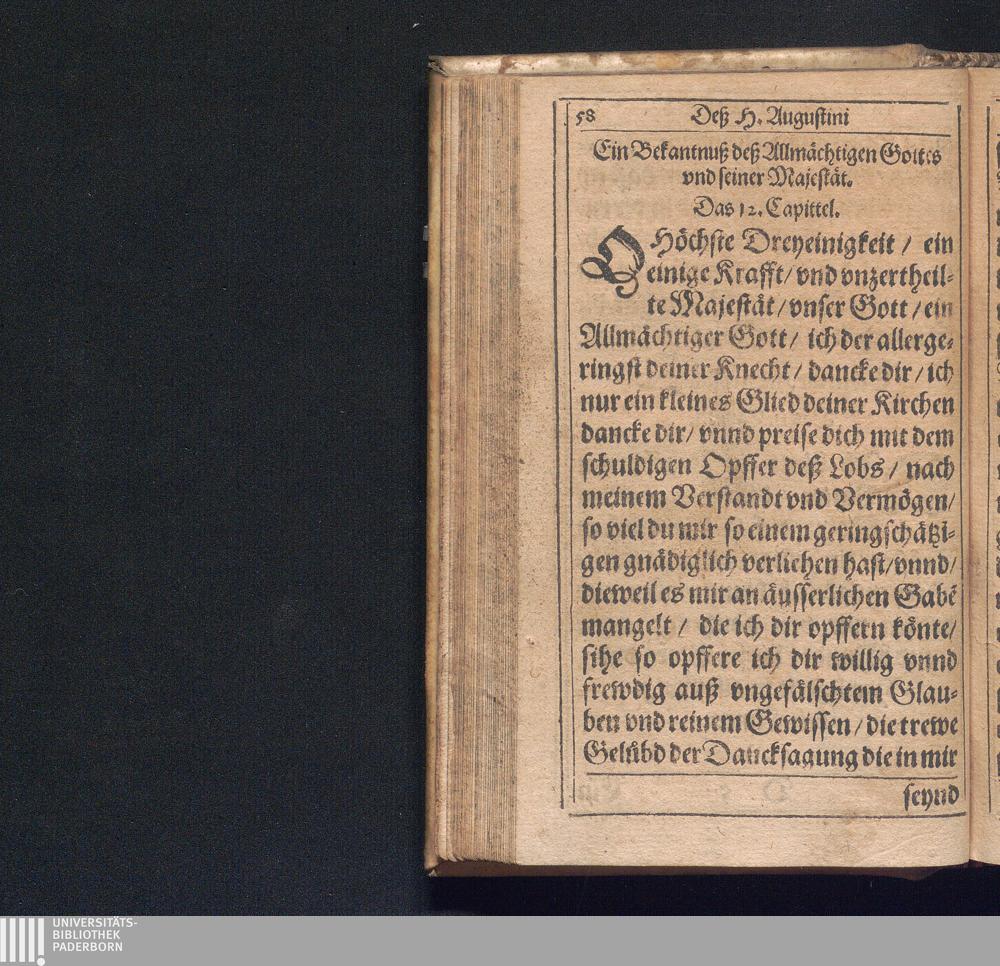 58 Deß H. Augustini
Ein Bekantnuß deß Allmächtigen Gottes
vnd seiner Majestät.
Das 12. Capittel.
O Höchste Dreyeinigkeit / ein
einige Krafft / vnd vnzertheil-
te Majestät / vnser Gott / ein
Allmächtiger Gott / ich der allerge-
ringst deiner Knecht / dancke dir / ich
nur ein kleines Glied deiner Kirchen
dancke dir / vnnd preise dich mit dem
schuldigen Opffer deß Lobs / nach
meinem Verstandt vnd Vermögen /
so viel du mir so einem geringschätzi-
gen gnädiglich verliehen hast / vnnd /
dieweil es mir an äusserlichen Gabē
mangelt / die ich dir opffern könte /
sihe so opffere ich dir willig vnnd
frewdig auß vngefälschtem Glau-
ben vnd reinem Gewissen / die trewe
Gelübd der Dancksagung die in mir
seynd
UNIVERSITÄTS-
BIBLIOTHEK
PADERBORN